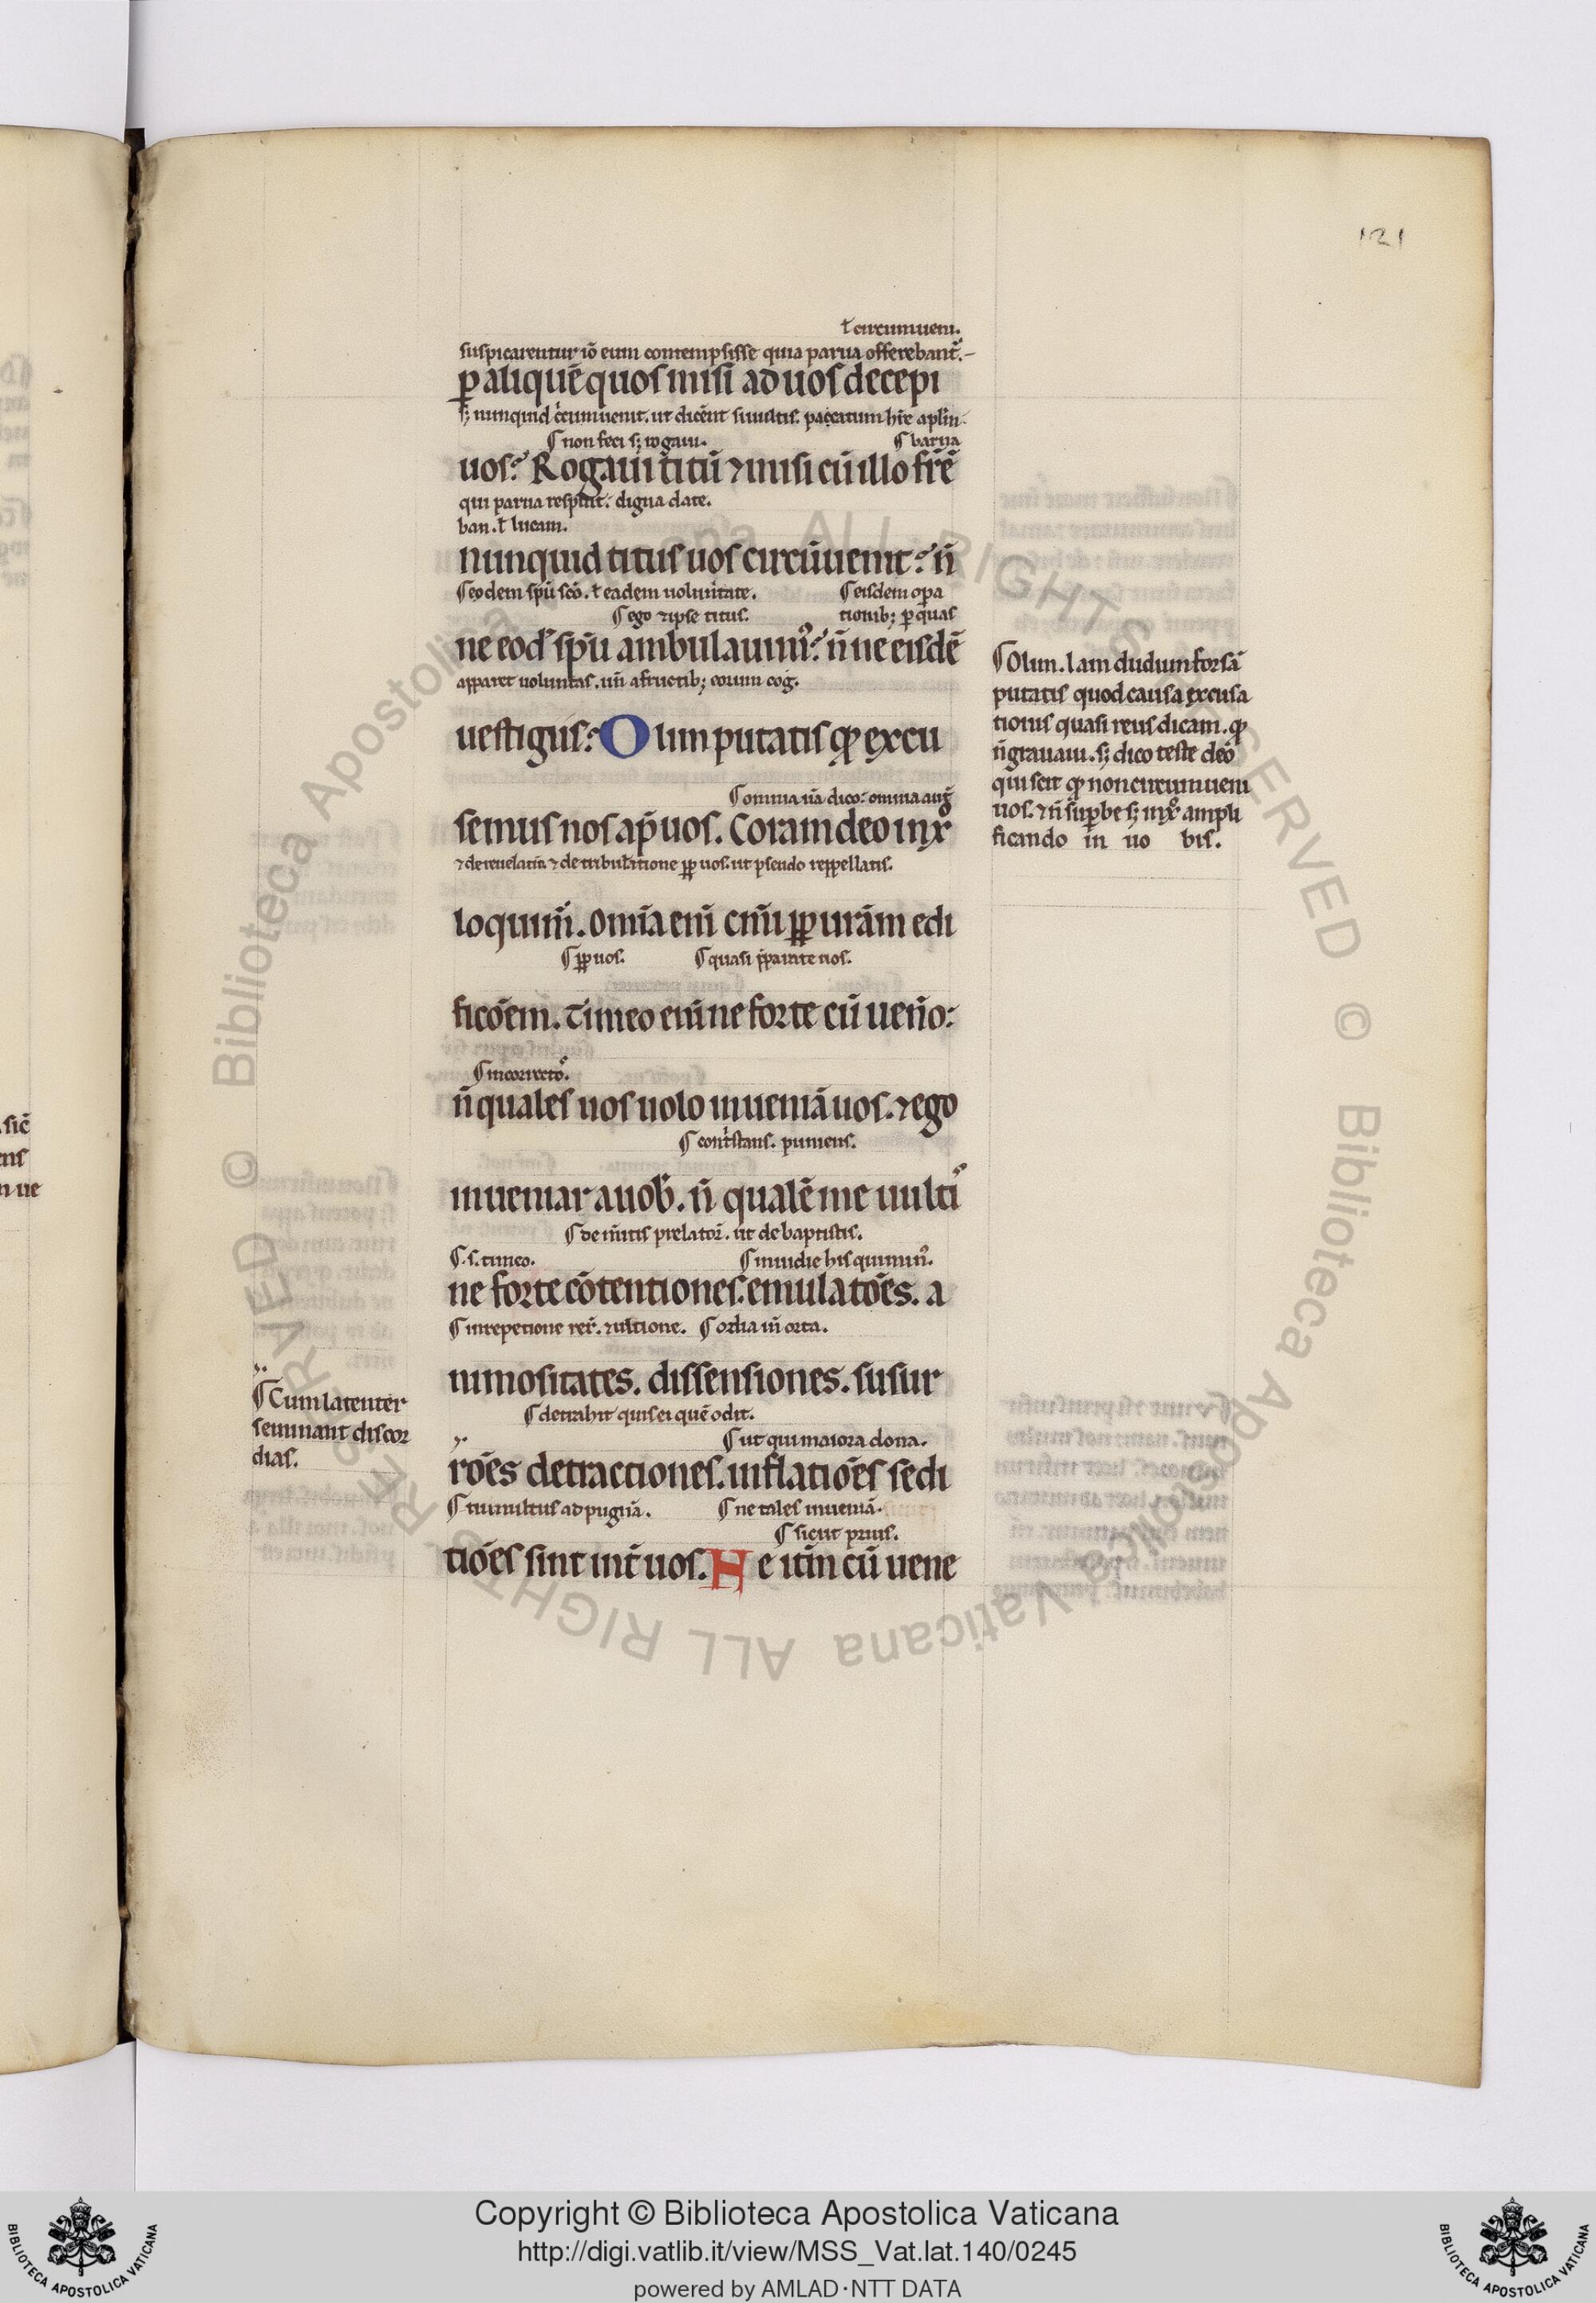 121
ł circumueni.
suspicarentur iō eum contempsisse quia parua offerebant̃.
ꝑ aliquē quos misi ad uos decepi
qui parua respuit. digna date.
¶ non feci sꝫ rogaui.
¶ barna
uos? Rogaui titū ⁊ misi cū illo frẽ
ban. ł lucam.
nunquid titus uos circūuenit? n̄
¶ eodem sp̄u scō. ł eadem uoluntate.
¶ eisdem opa
¶ ego ⁊ ipse titus.
tionibꝫ ꝑ quas
ne eod̃ sp̄u ambulauimꝰ? n̄ ne eisdē
apparet uoluntas. un̄ a fructibꝫ eorum cog̃.
uestigiis? Olim putatis qđ excu
¶ omnia u̅a dico: omnia aut̃
semus nos ap̄ uos. Coram deo in xp̃o
loquim̃. Omīa eni̅ cm̄i ꝓp̄ ur̄am edi
¶ ꝓp̄ uos.
¶ quasi p̄parate uos.
ficōem. Timeo eni̅ ne forte cū uen̄o:
¶ incorrectoꝰ.
n̄ quales uos uolo inueniā uos. ⁊ ego
¶ cont̃stans. puniens.
inueniar a uob̃. n̄ qualē me uultiꝰ
¶ de m̃itis prelator̃. ut de baptistis.
¶ .s. timeo.
¶ inuidie his qui min̄ꝰ.
ne forte cōtentiones. emulatōes. a
¶ odia in̄ orta.
nimositates. dissensiones. susur
¶ detrahit quis ei quē odit.
¶ ut qui maiora dona.
rōes detractiones. inflatiōes sedi
¶ tumultus ad pugnā.
¶ ne tales inueniā.
¶ sicut prius.
tiōes sint int̃ uos. Ne it̃m cū uene
¶ Olim. Iam dudum forsā
putatis quod causa excusa
tionis quasi reus dicam. qđ
n̄ grauaui. sꝫ dico teste deo
qui scit qđ non circumueni
uos. ⁊ n̄ suꝑbe sꝫ in xp̃o ampli
ficando in uo bis.
¶ Cum latenter
seminant discor
dias.
sic̄
Copyright © Biblioteca Apostolica Vaticana
http://digi.vatlib.it/view/MSS_Vat.lat.140/0245
powered by AMLAD·NTT DATA
BIBLIOTECA APOSTOLICA VATICANA
BIBLIOTECA APOSTOLICA VATICANA
© Biblioteca Apostolica Vaticana ALL RIGHTS RESERVED
© Biblioteca Apostolica Vaticana ALL RIGHTS RESERVED